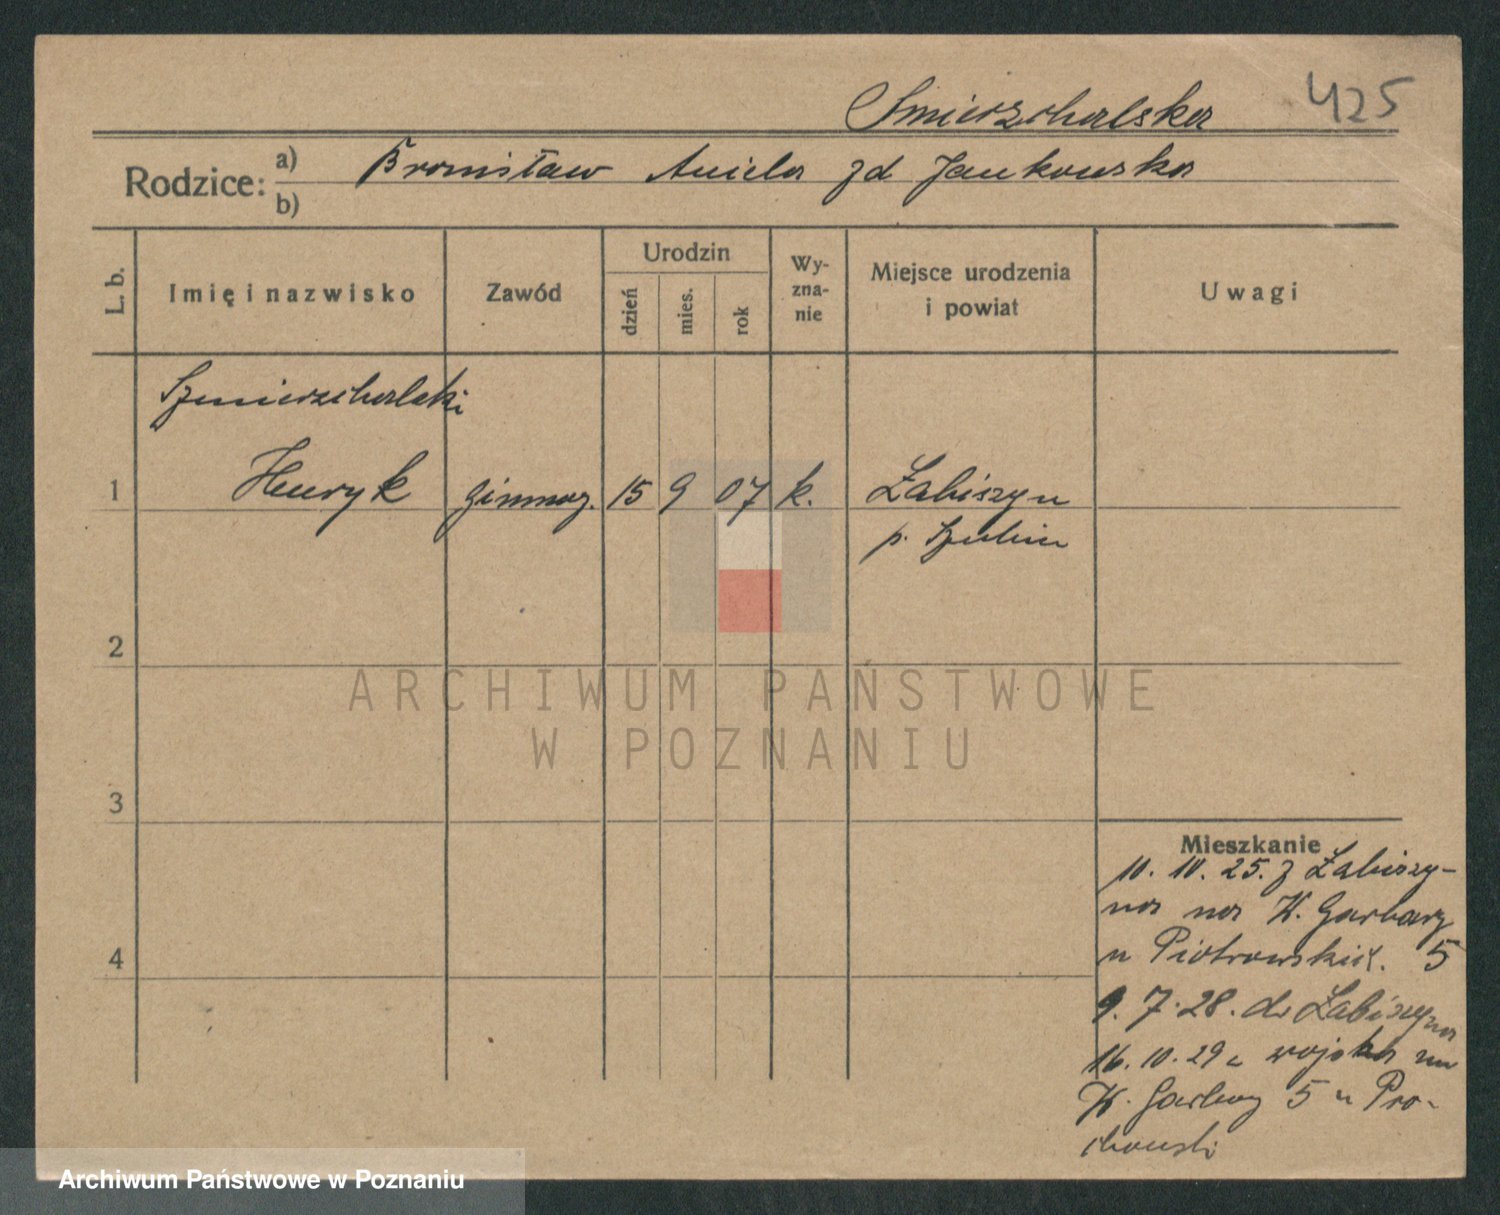 425
Smierzchalska
Rodzice: a) Bronisław Aniela zd Jankowska
b)
L. b. Imię i nazwisko Zawód Urodzin dzień mies. rok Wyznanie Miejsce urodzenia i powiat Uwagi
Szmierzchalski
1 Henryk gimnaz. 15 9 07 k. Łabiszyn
p. Szubin
2
3
4
Mieszkanie
10. 10. 25. z Łabiszy-
na na W. Garbary
u Piotrowskich. 5
9. 7. 28. do Łabiszyna
16. 10. 29 z wojska na
W. Garbary 5 u Pro-
chowski
ARCHIWUM PAŃSTWOWE
W POZNANIU
Archiwum Państwowe w Poznaniu